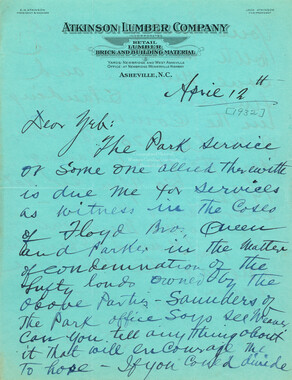 ATKINSON LUMBER COMPANY
INCORPORATED
RETAIL
LUMBER
BRICK AND BUILDING MATERIAL
YARDS, NEWBRIDGE AND WEST ASHEVILLE
ASHEVILLE, N.C.
April 12th
[1932]
Dear Zeb:
The Park Service
or some one allied therewith
is due me for services
as witness in the Cases
of Floyd Bro, Queen
and Parker in the matter
of condemnation of the
lands owned by the
above parties - Saunders of
the Park office Says see Weaver
Can you tell anything about
it that will encourage me
to hope - If you could divide